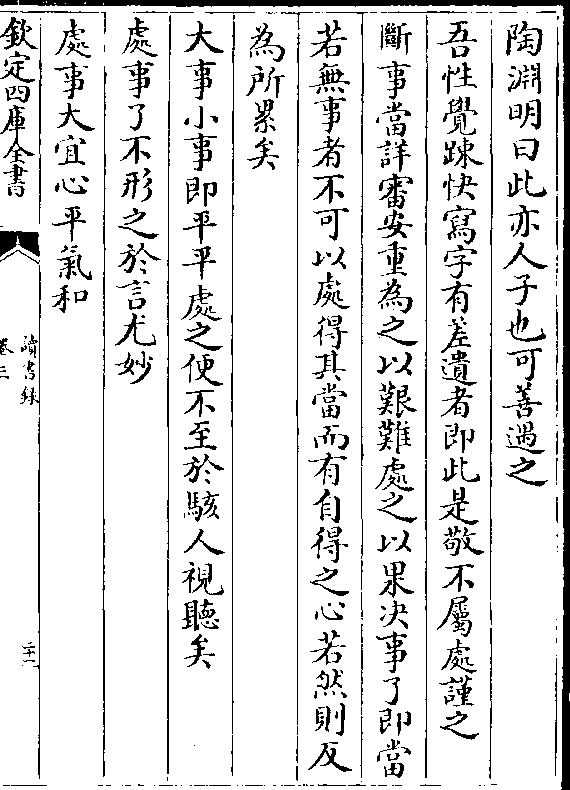 陶淵明曰此亦人子也可善遇之
吾性覺踈快寫字有差遺者即此是敬不屬處謹之
斷事當詳審安重為之以艱難處之以果决事了即當
若無事者不可以處得其當而有自得之心若然則反
為所累矣
大事小事即平平處之便不至於駭人視聽矣
處事了不形之於言尤妙
處事大宜心平氣和
欽定四庫全書
讀書錄